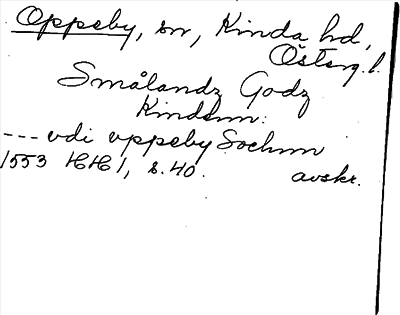 Oppeby, sn, Kinda hd,
Österg.l.
Smålandz Godz
Kindzmn:
--- vdi vppeby Sochnn
1553 HH 1, s. 40. avskr.